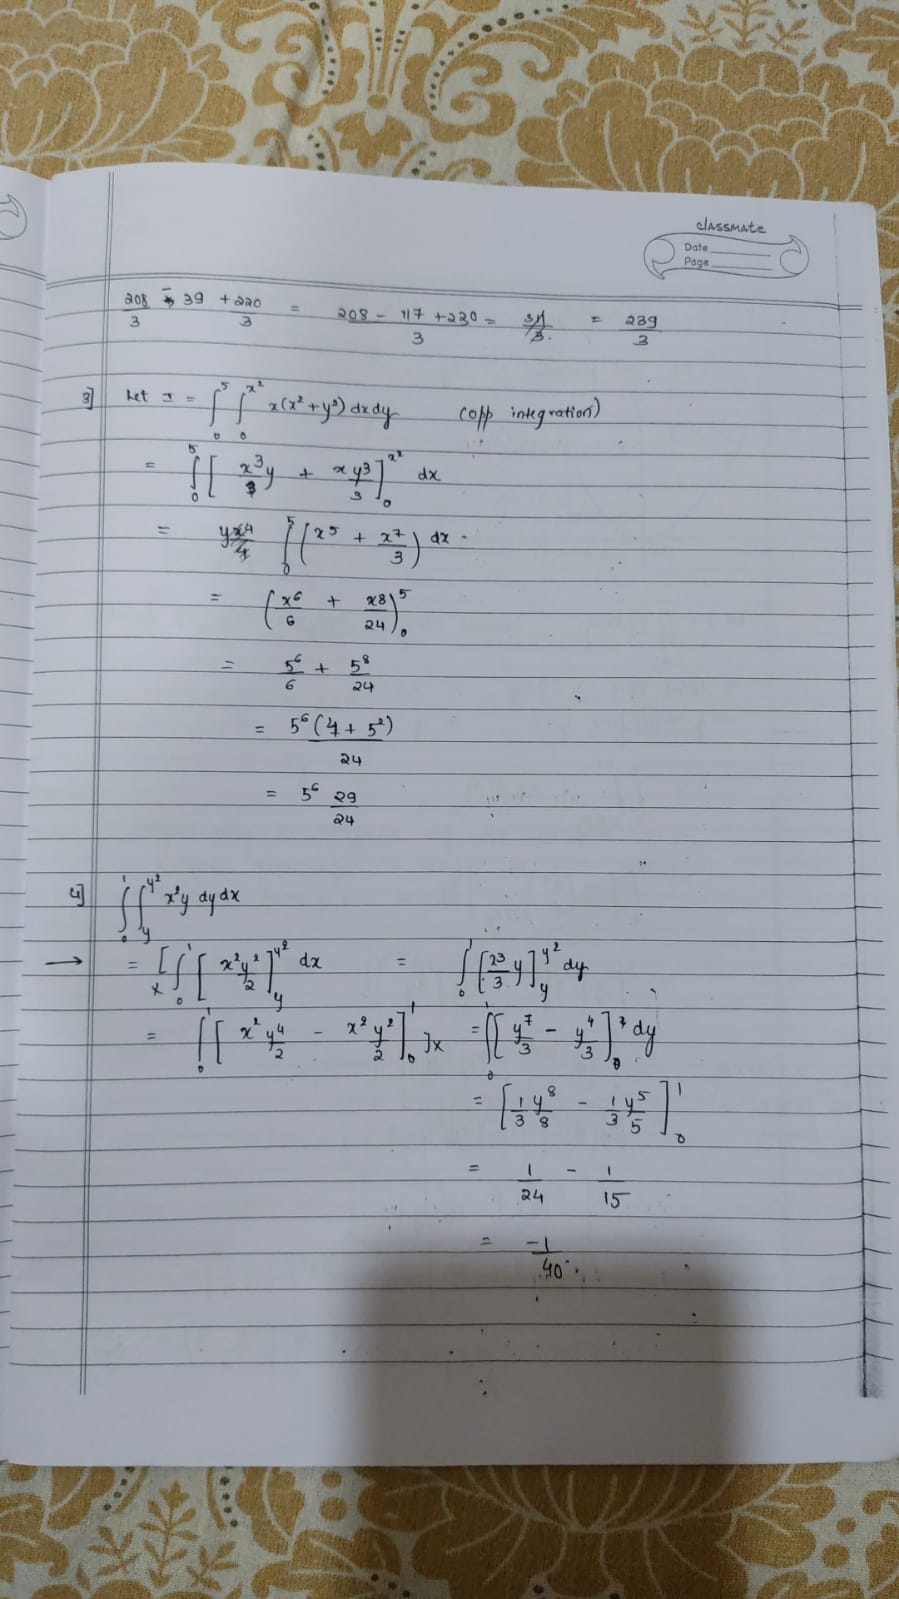 classmate
Date
Page
208/3 - 39 + 220/3 = (208 - 117 + 220)/3 = = 239/3
3] Let I = ∫₀⁵ ∫₀^(x²) x(x² + y²) dx dy (opp integration)
= ∫₀⁵ [x³y + xy³/3]₀^(x²) dx
= ∫₀⁵ (x⁵ + x⁷/3) dx
= (x⁶/6 + x⁸/24)₀⁵
= 5⁶/6 + 5⁸/24
= 5⁶(4 + 5²)/24
= 5⁶ 29/24
4] ∫₀¹ ∫_y^(y²) x²y dy dx
→ = [∫₀¹ [x²y²/2]_y^(y²) dx = ∫₀¹ [x³/3 y]_y^(y²) dy
x
= ∫₀¹ [x² y⁴/2 - x² y²/2]₀¹ ]x = ∫₀¹ [y⁷/3 - y⁴/3] dy
= [1/3 y⁸/8 - 1/3 y⁵/5]₀¹
= 1/24 - 1/15
= -1/40